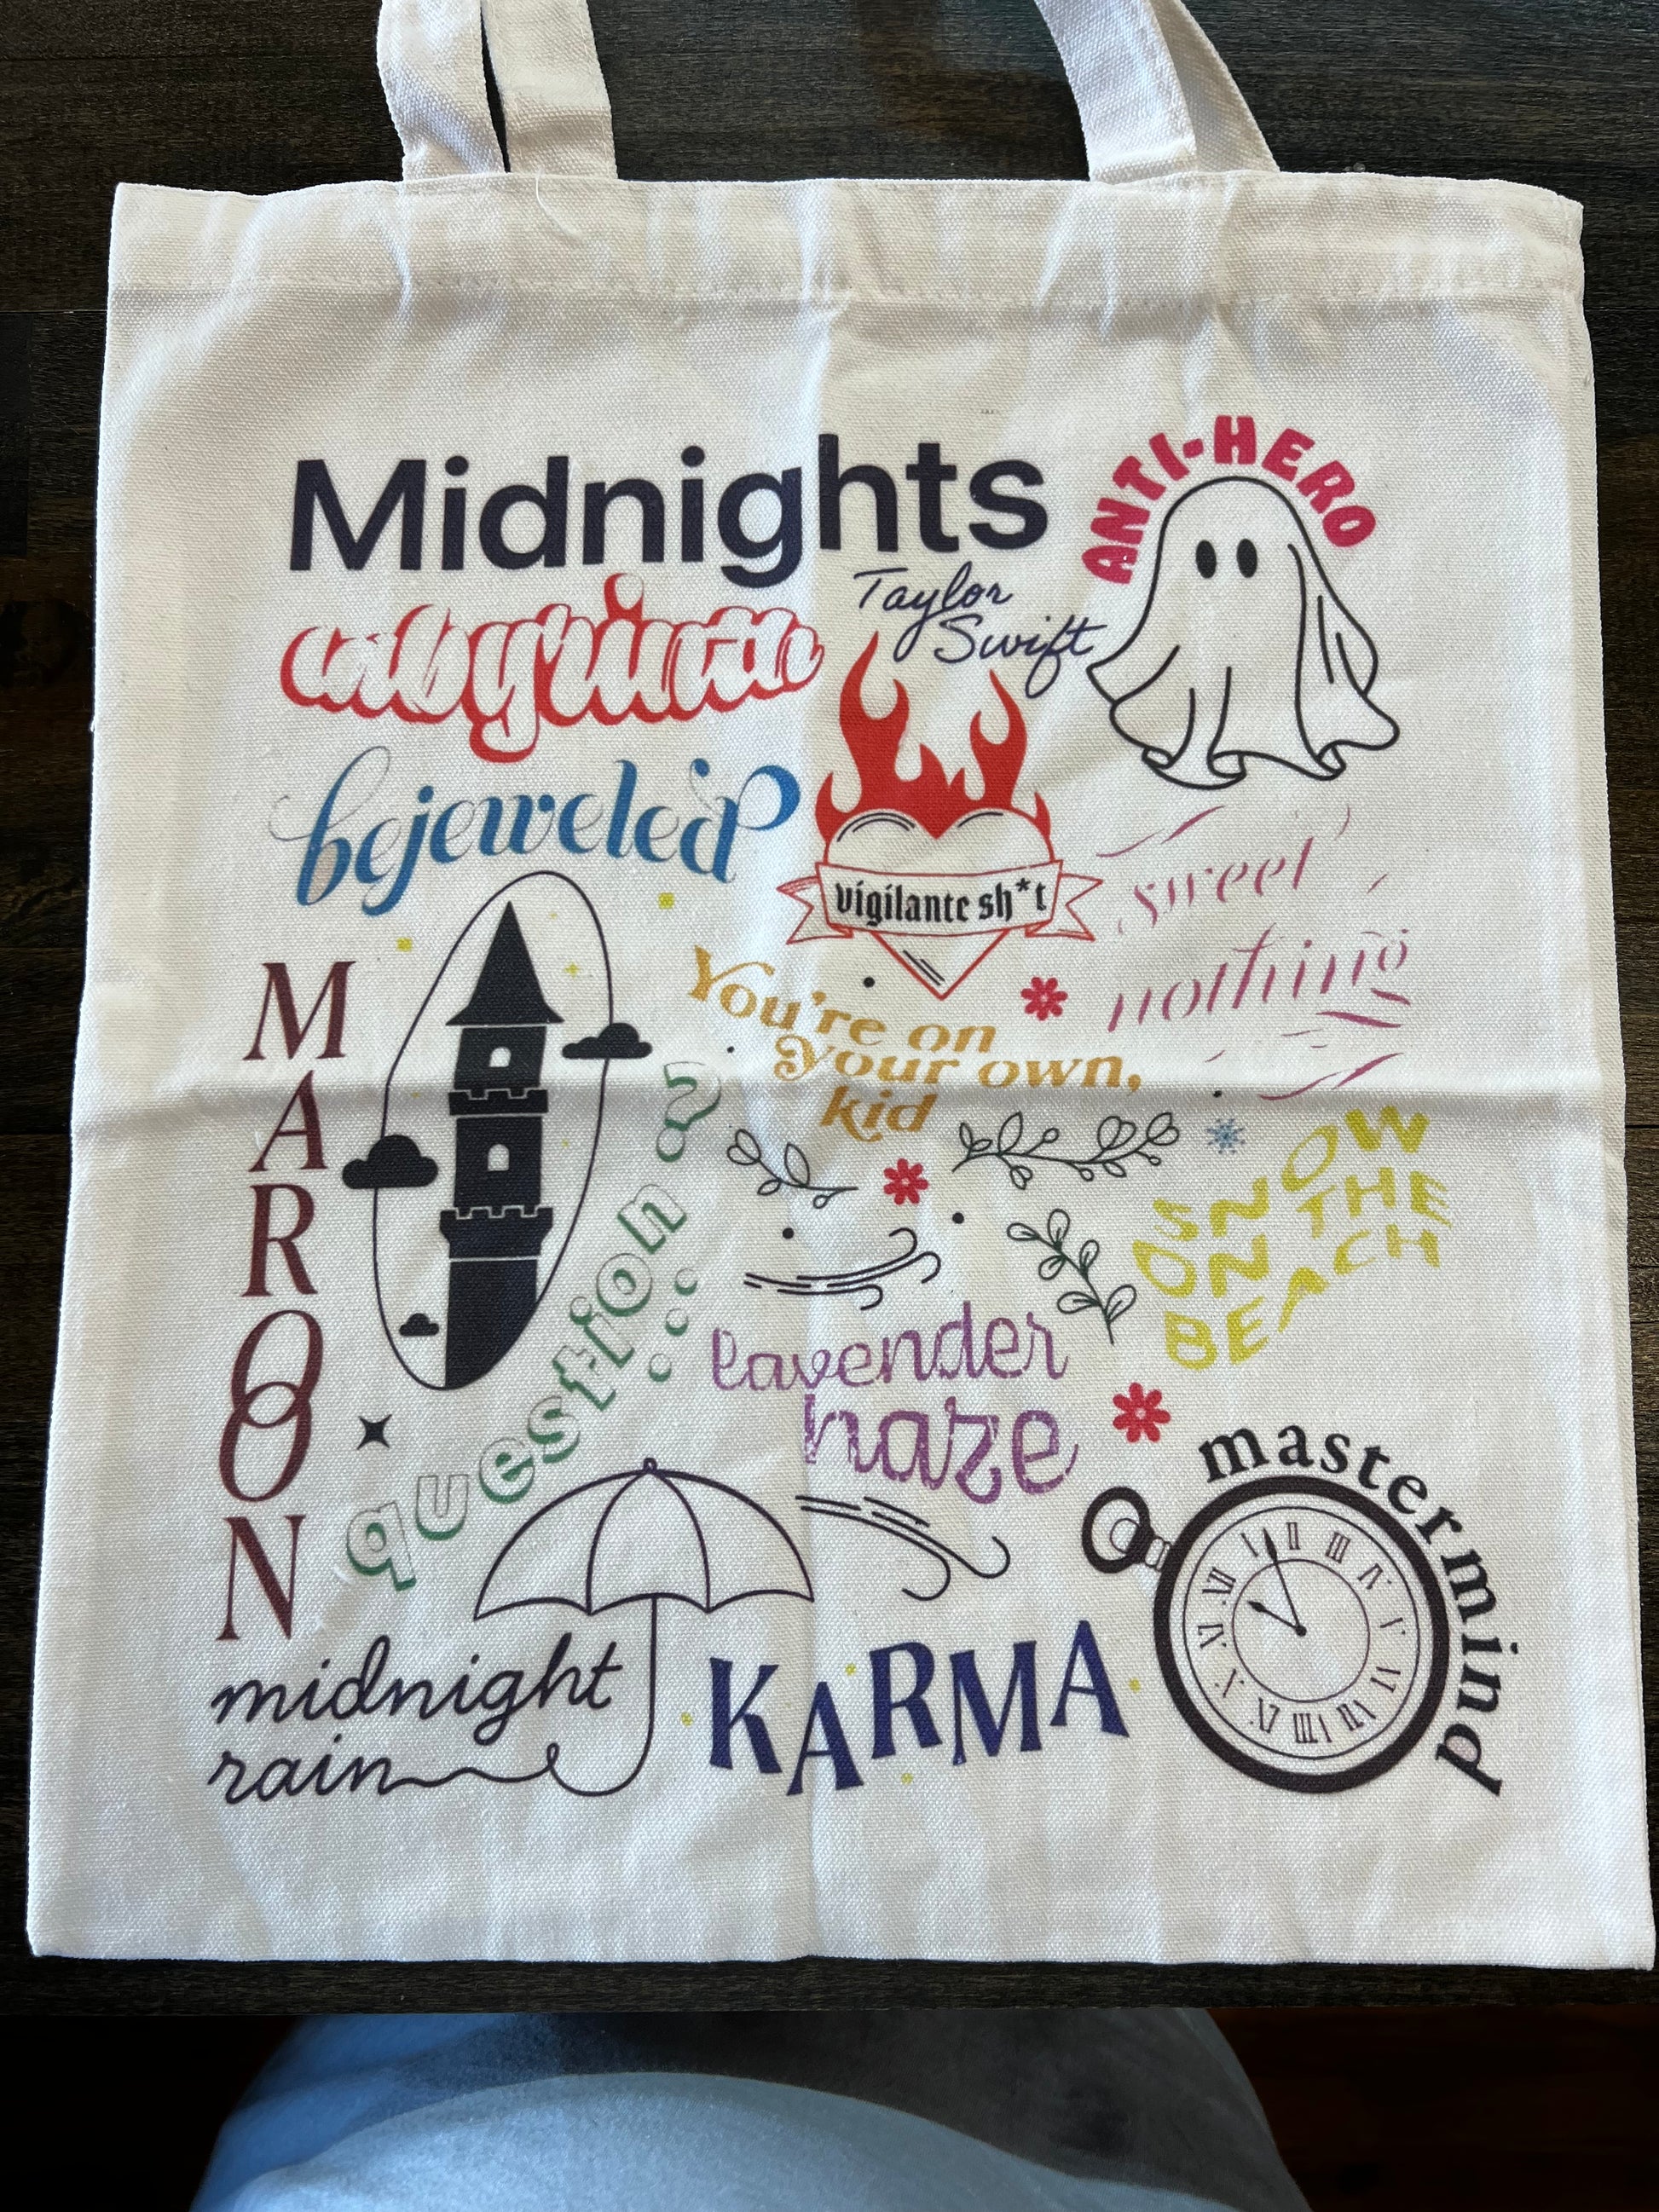 Midnights
Taylor
Swift
ANTI-HERO
labyrinth
bejeweled
vigilante sh*t
sweet
nothing
MAROON
You're on
your own,
kid
question...?
SNOW
ON THE
BEACH
lavender
haze
mastermind
midnight
rain
KARMA